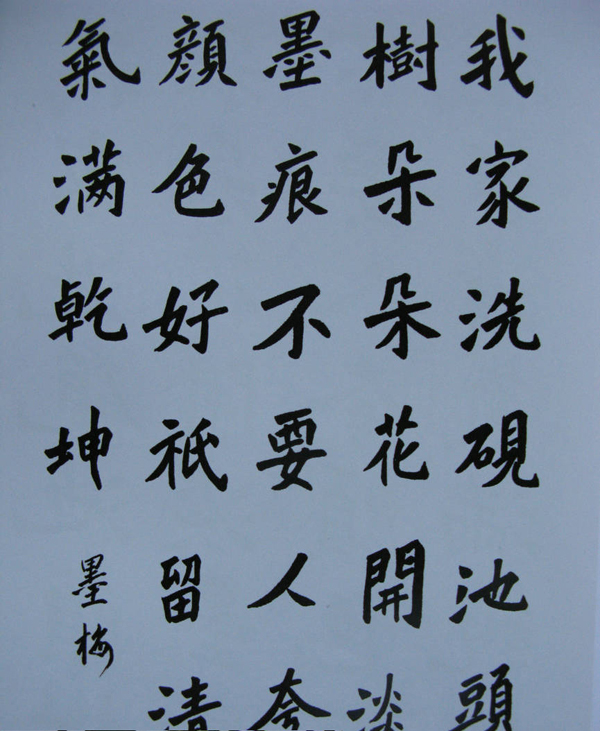 我家洗硯池頭
樹朵朵花開淡
墨痕不要人夸
顔色好祇留清
氣满乾坤
墨梅